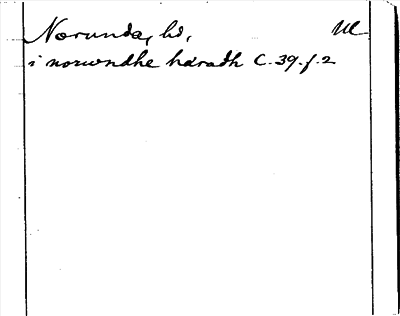 Norunda, hd, Ul
i norwndhe háradh C. 39. f. 2